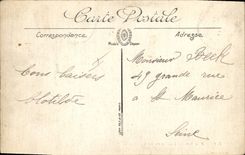 Carte Postale
Correspondance
Adresse
Monsieur Beek
Bons baisers
49 grande rue
Clotilde
à St Maurice
Seine